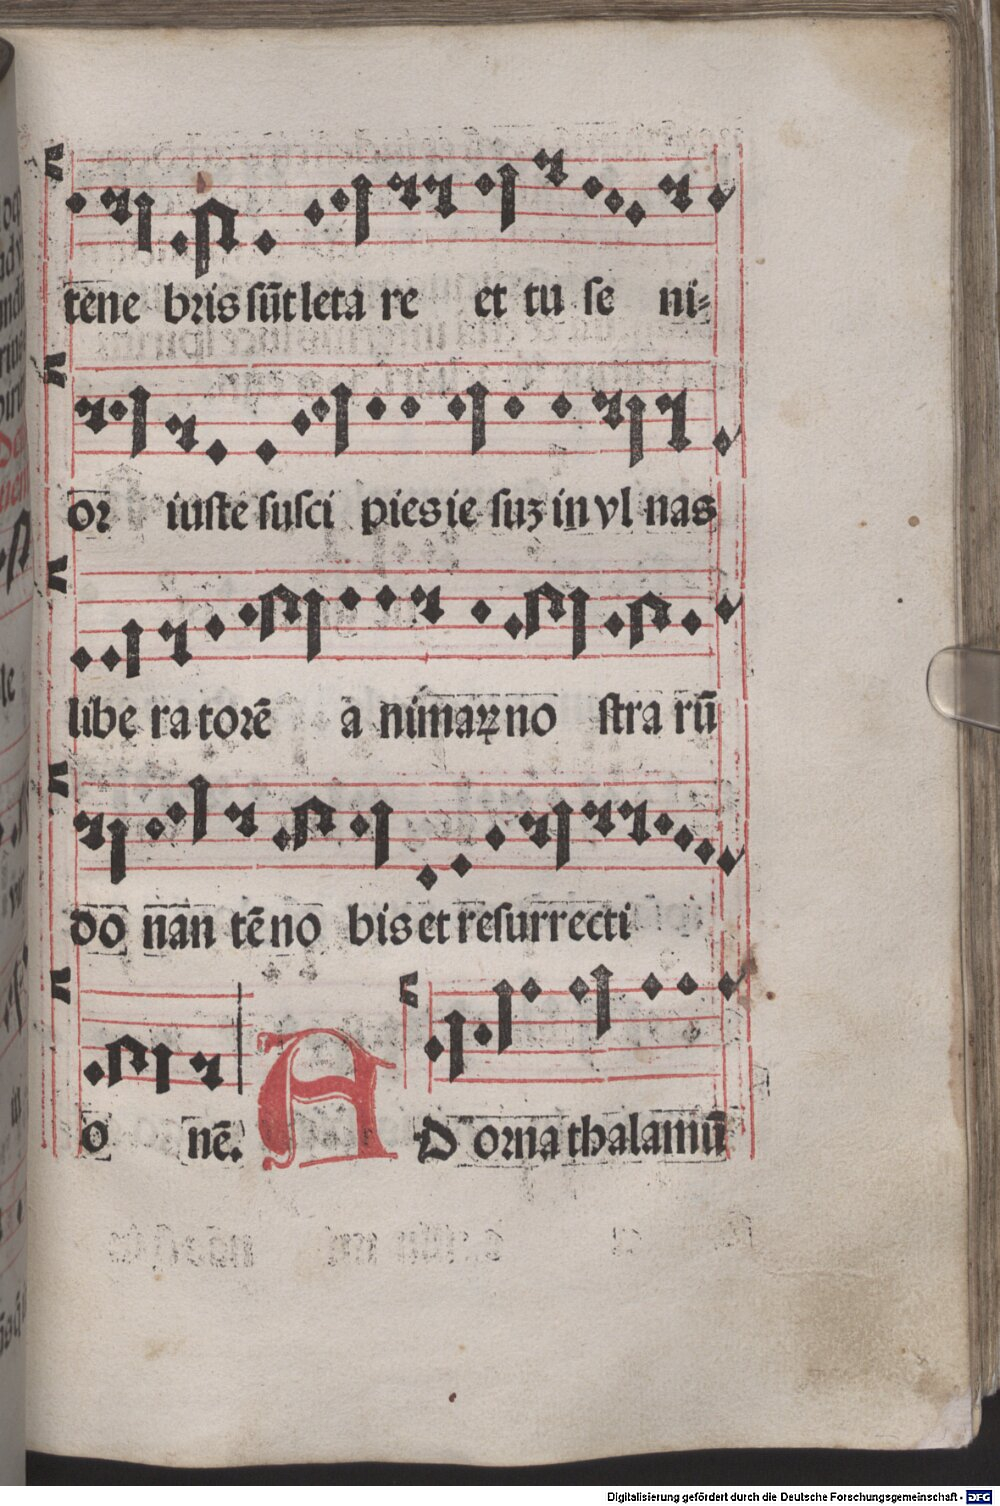 tene bris sūt leta re et tu se ni⸗
or iuste susci pies ie suꝫ in vl nas
libe ra torē a nimaꝝ no stra rū
do nan tē no bis et resurrecti
o nē. A D orna thalamū
Digitalisierung gefördert durch die Deutsche Forschungsgemeinschaft - DFG